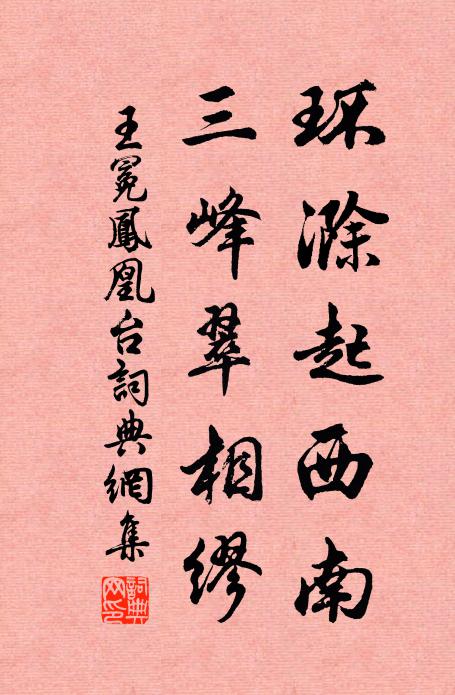 环滁起西南
三峰翠相缪
王冕鳳凰台詞典網集
詞典网印